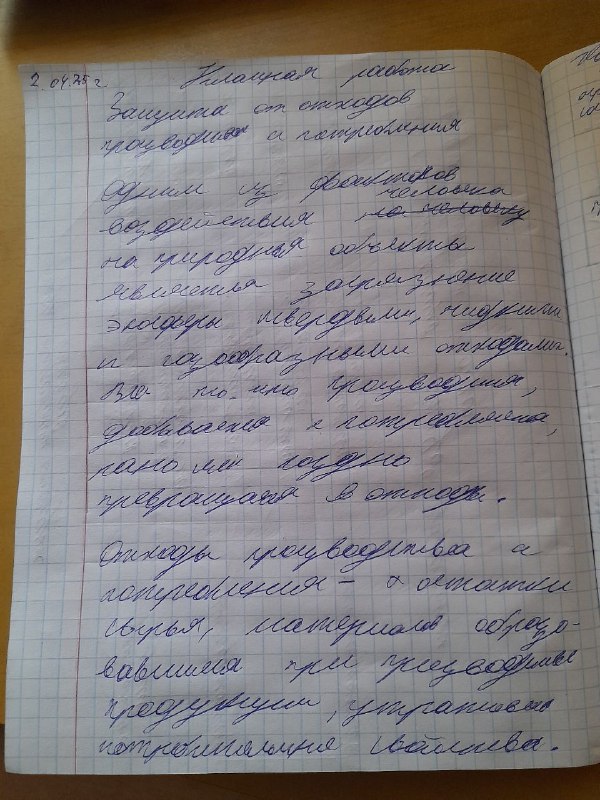 2.04.25 г Классная работа
Защита от отходов
производства и потребления
Одним из факторов
воздействия человека на человеку
на природные объекты
является загрязнение
экосферы твердыми, жидкими
и газообразными отходами.
Все то что производится,
добывается и потребляется,
рано или поздно
превращается в отходы.
Отходы производства и
потребления - остатки
сырья, материалов образо-
вавшиеся при производстве
продукции, утратившие
потребительские свойства.